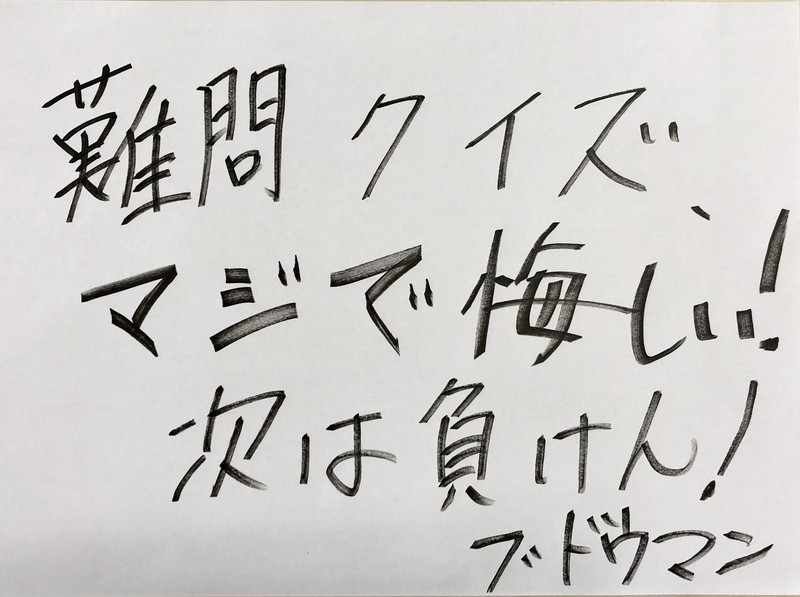 難問クイズ、
マジで悔しい!
次は負けん!
ブドウマン